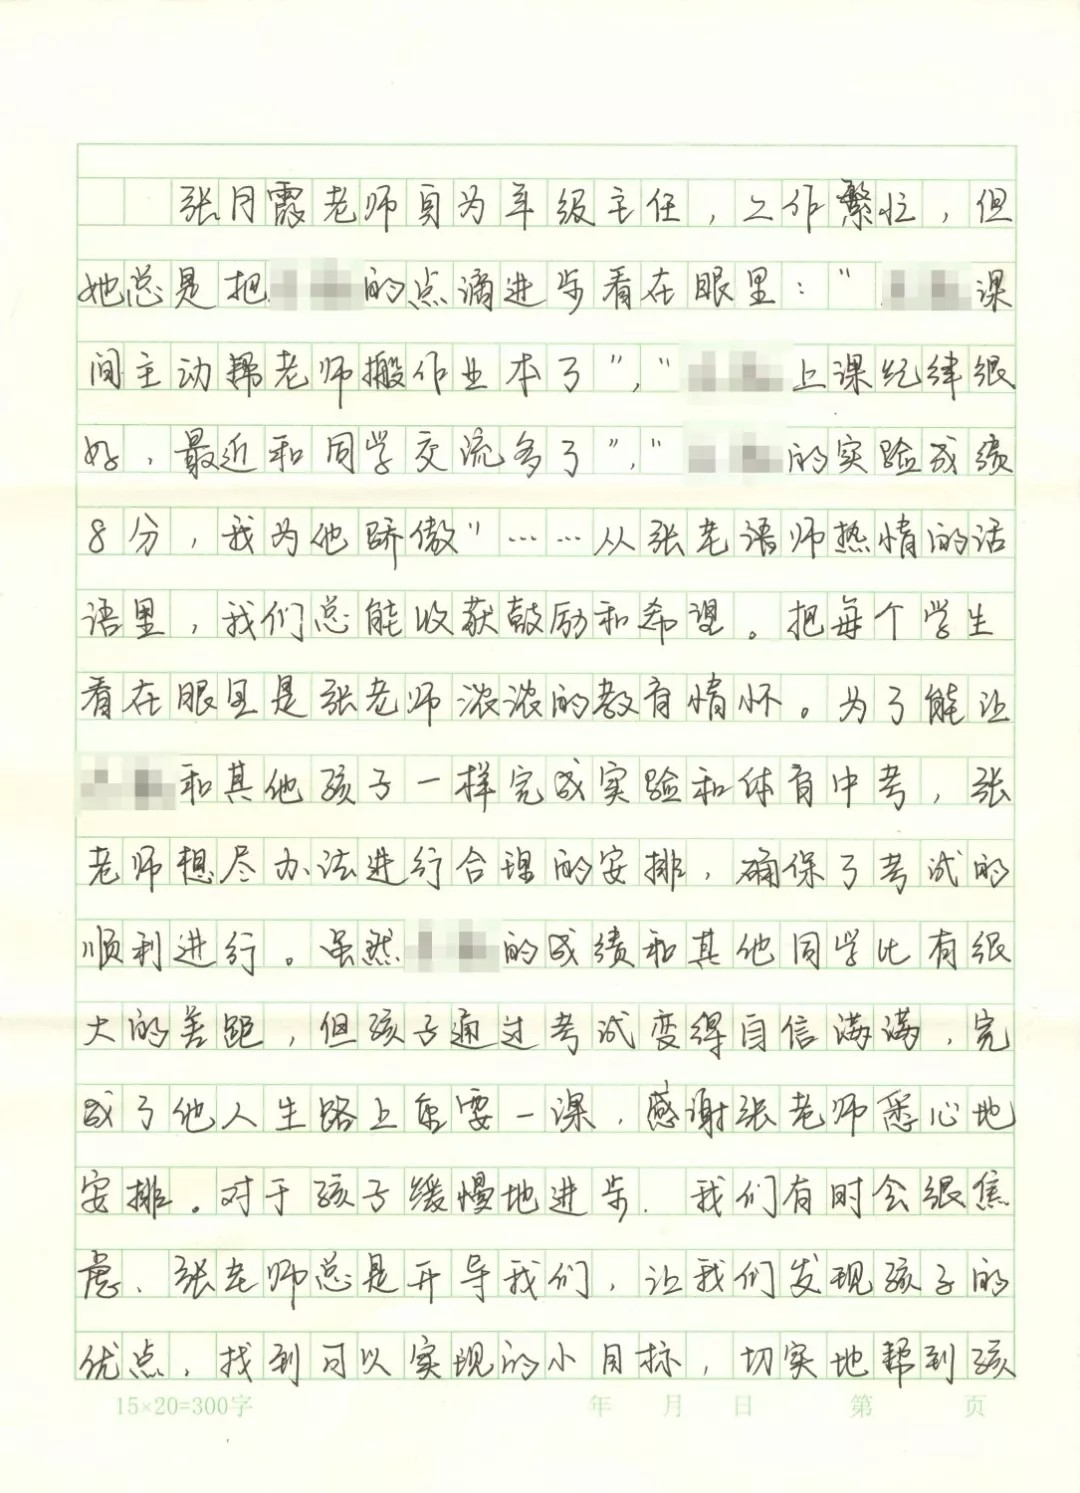 张月霞老师身为年级主任，工作繁忙，但
她总是把的点滴进步看在眼里：“课
间主动帮老师搬作业本了”，“上课纪律很
好，最近和同学交流多了”，“的实验成绩
8分，我为他骄傲”……从张老语师热情的话
语里，我们总能收获鼓励和希望。把每个学生
看在眼里是张老师浓浓的教育情怀。为了能让
和其他孩子一样完成实验和体育中考，张
老师想尽办法进行合理的安排，确保了考试的
顺利进行。虽然的成绩和其他同学比有很
大的差距，但孩子通过考试变得自信满满，完
成了他人生路上重要一课，感谢张老师悉心地
安排。对于孩子缓慢地进步，我们有时会很焦
虑、张老师总是开导我们，让我们发现孩子的
优点，找到可以实现的小目标，切实地帮到孩
15×20=300字 年 月 日 第 页